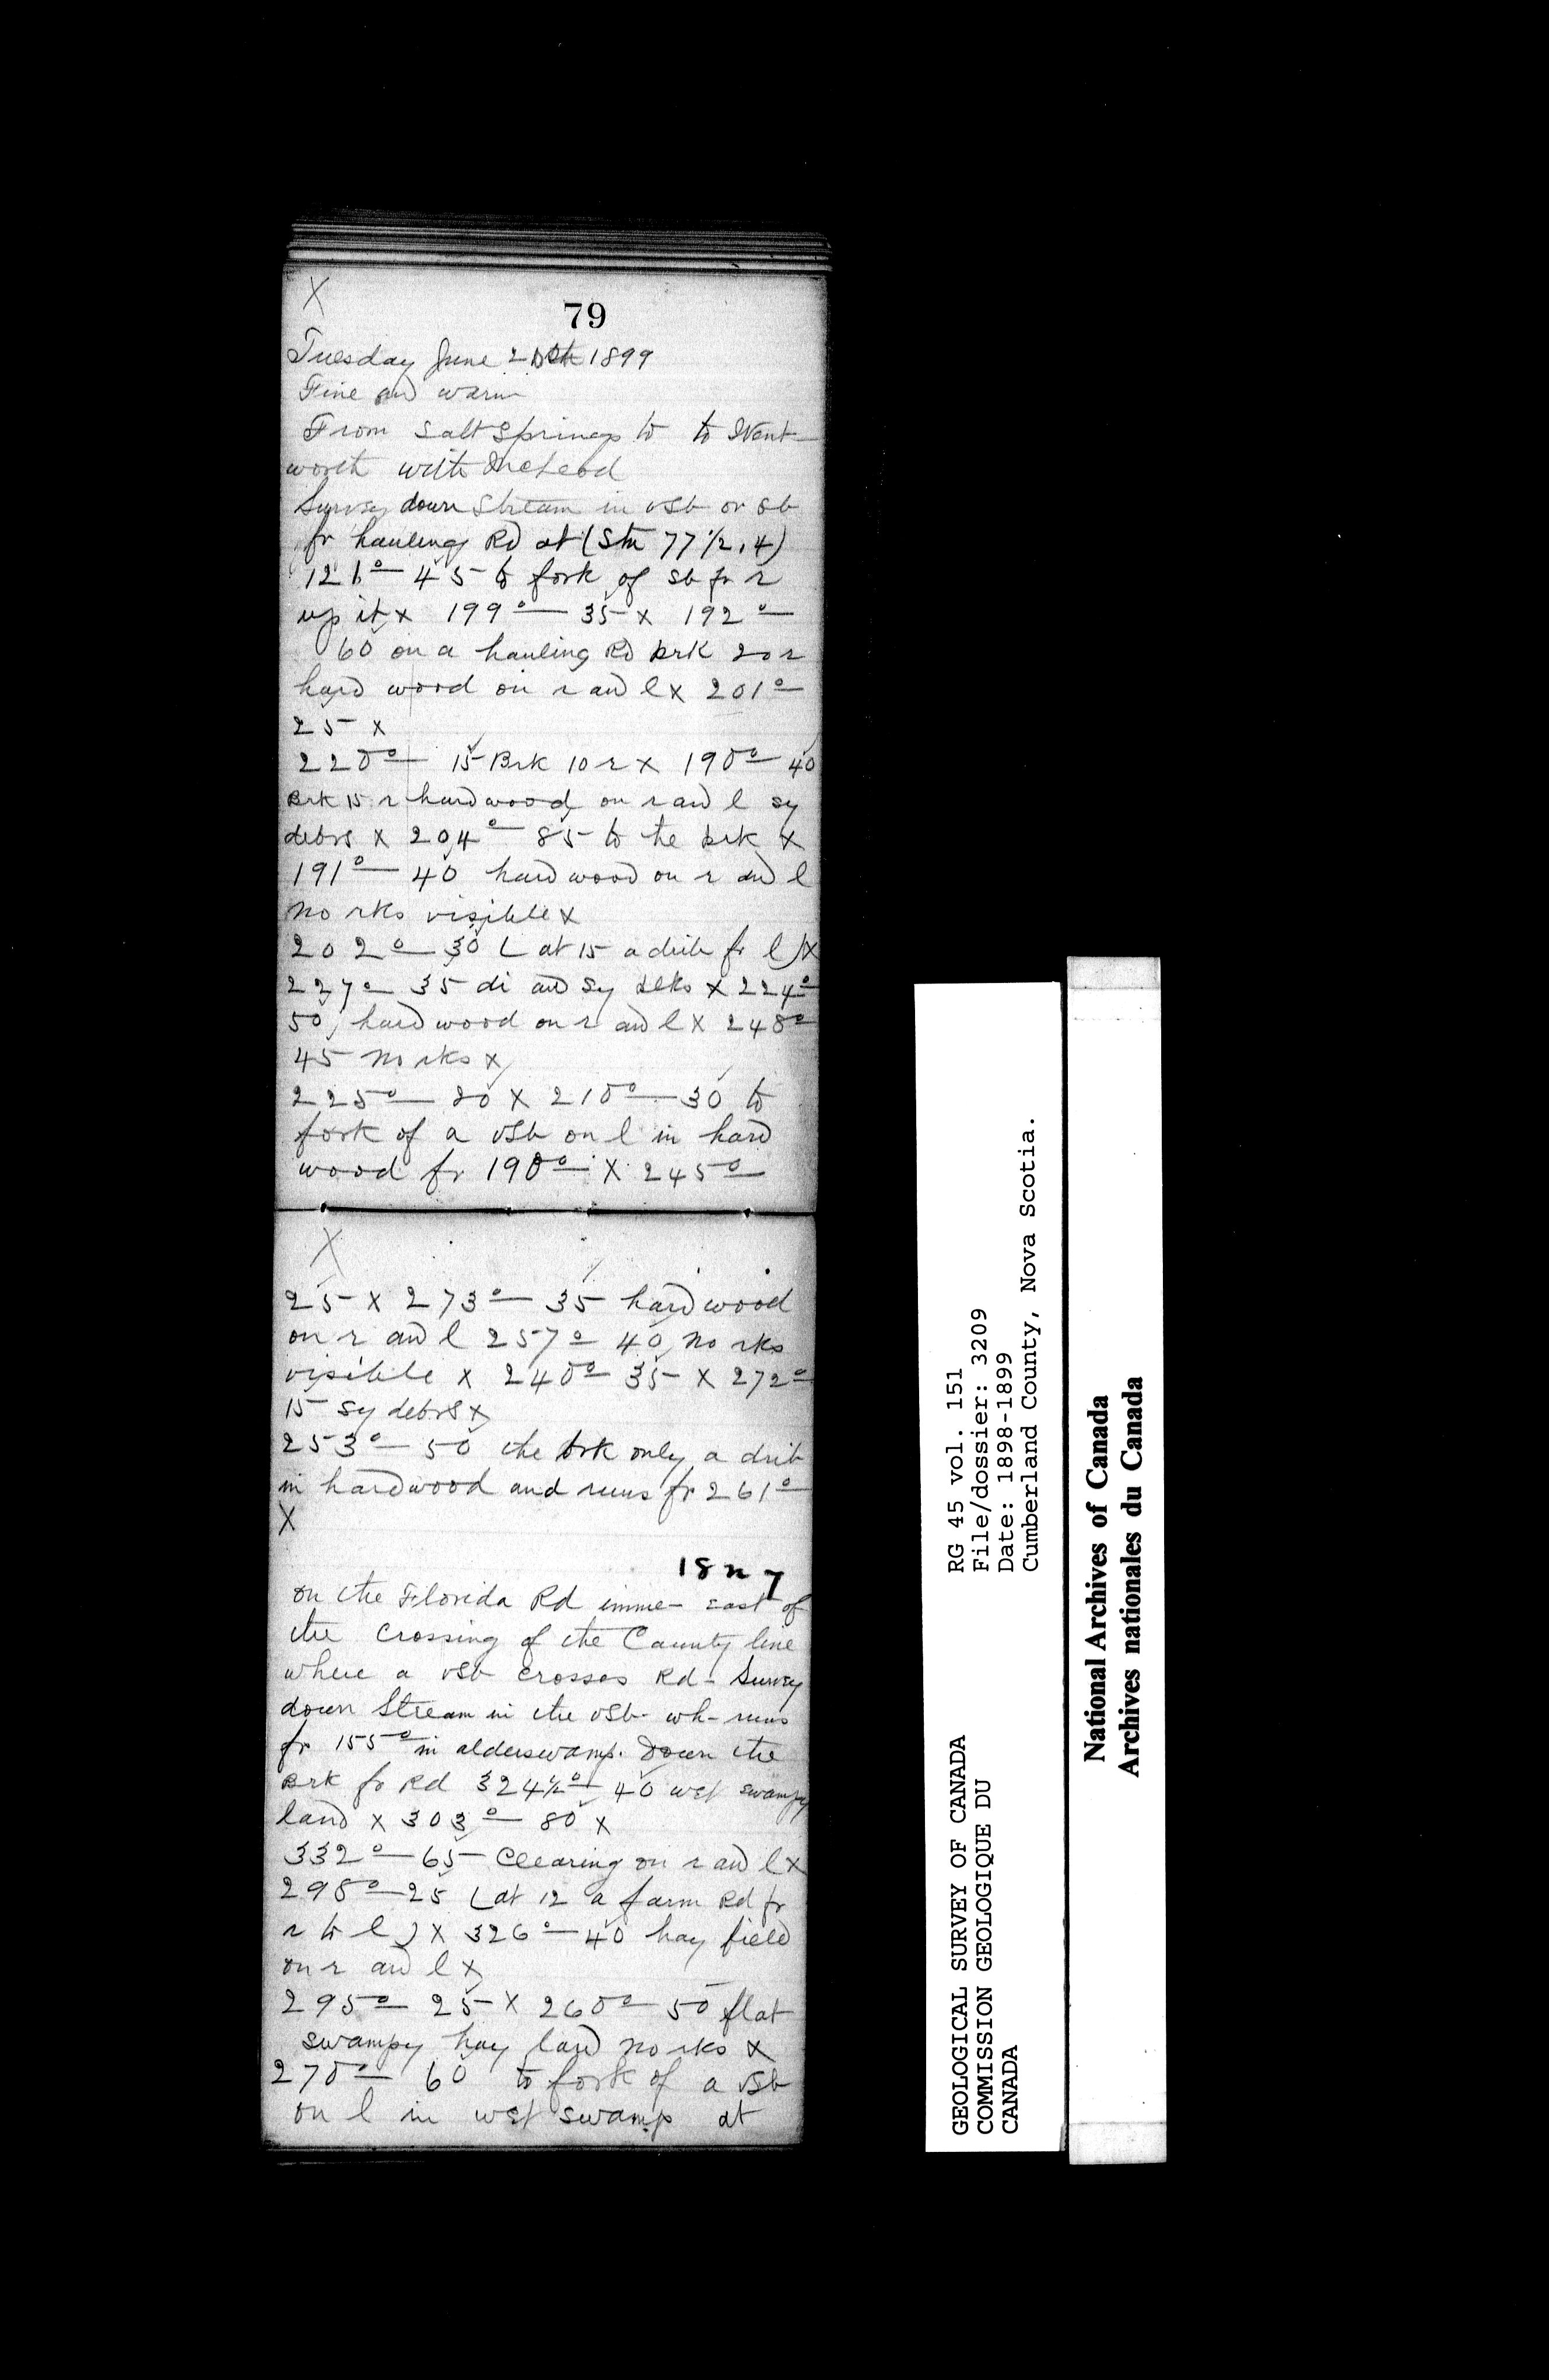 X
79
Tuesday June 20th 1899
Fine and warm
From Salt Springs to to Went-
worth with McLeod
Survey down Stream in vsb or sb
fr hauling Rd at (Stn 77 1/2, 4)
121° — 45 to fork of sb fr r
up it x 199° — 35 x 192° —
60 on a hauling Rd brk 20 r
hard wood on r and l x 201° —
25 x
220° — 15 Brk 10 r x 190° — 40
Brk 15 r hardwood on r and l sy
debrs x 204° — 85 to the brk x
191° — 40 hard wood on r and l
no rks visible x
202° — 30 (at 15 a drib fr l) x
227° — 35 di and sy blks x 224° —
50, hard wood on r and l x 248° —
45 no rks x
225° — 20 x 210° — 30 to
fork of a vsb on l in hard
wood fr 190° — x 245° —
X
25 x 273° — 35 hard wood
on r and l 257° — 40 no rks
visible x 240° — 35 x 272° —
15 sy debrs x
253° — 50 the brk only a drib
in hardwood and runs fr 261° —
X
18 n 7
on the Florida Rd imme- east of
the crossing of the County line
where a vsb crosses Rd - Survey
down Stream in the vsb - wh - runs
fr 155° in alderswamp. Down the
Brk fr Rd 324 1/2° — 40 wet swampy
land x 303° — 80 x
332° — 65 Clearing on r and l x
298° — 25 (at 12 a farm Rd fr
r to l) x 326° — 40 hay field
on r and l x
295° — 25 x 260° — 50 flat
swampy hay land no rks x
270° — 60 to fork of a vsb
on l in wet swamp at
GEOLOGICAL SURVEY OF CANADA
COMMISSION GEOLOGIQUE DU
CANADA
RG 45 vol. 151
File/dossier: 3209
Date: 1898-1899
Cumberland County, Nova Scotia.
National Archives of Canada
Archives nationales du Canada